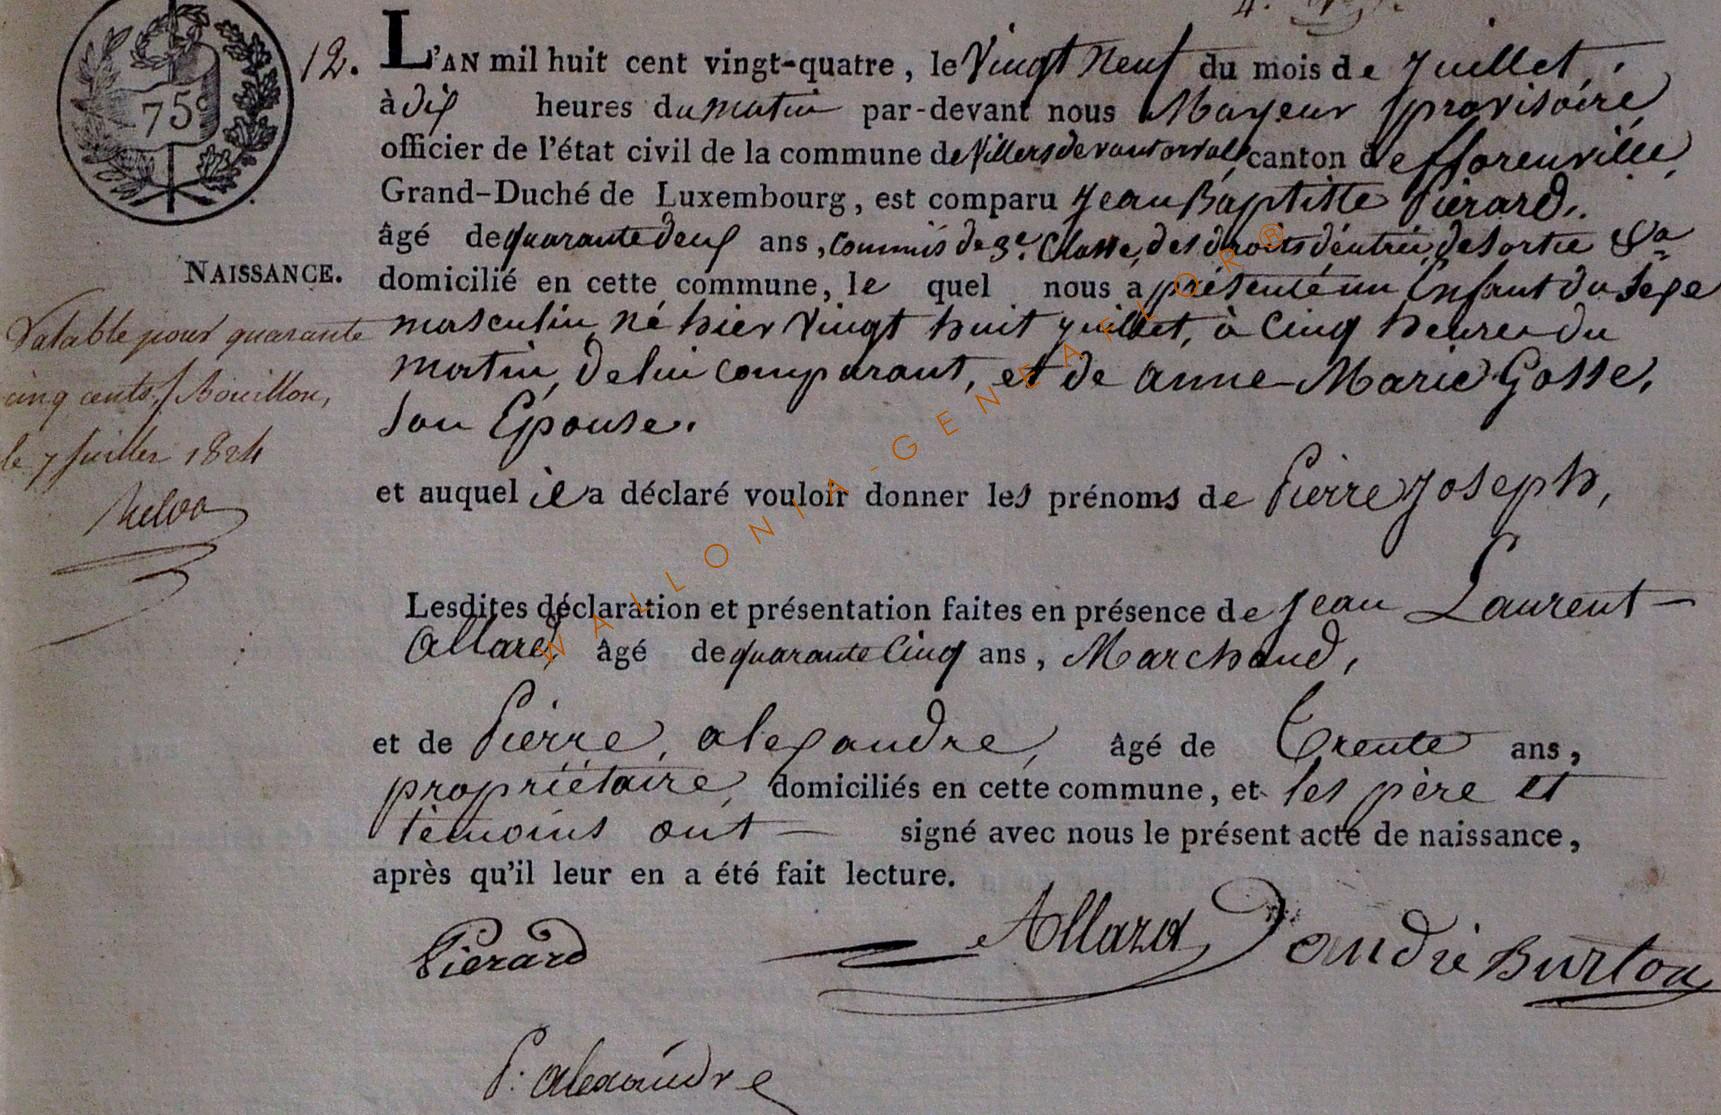 75c
12.
L'AN mil huit cent vingt-quatre, le Vingt Neuf du mois de Juillet,
à dix heures du matin par-devant nous Mayeur provisoire,
officier de l'état civil de la commune de Villers devant orval, canton de fflorenville,
Grand-Duché de Luxembourg, est comparu Jean Baptiste Piérard,
âgé de quarante deux ans, Commis de 3e. Classe, des droits d'entrée, de Sortie &a
NAISSANCE.
domicilié en cette commune, le quel nous a présenté un Enfant du Sexe
masculin, né hier Vingt huit juillet, à Cinq heures du
matin, de lui comparant, et de anne-Marie Gosse,
Son Epouse.
Valable pour quarante
cinq cents / Bouillon,
le 7 juillet 1824
et auquel il a déclaré vouloir donner les prénoms de Pierre Joseph,
Lesdites déclaration et présentation faites en présence de Jean Laurent-
Allard, âgé de quarante Cinq ans, Marchand,
et de Pierre, alexandre, âgé de Trente ans,
propriétaire, domiciliés en cette commune, et les père et
témoins ont signé avec nous le présent acte de naissance,
après qu'il leur en a été fait lecture.
Piérard
Allard
andré Burton
P. alexandre
WALLONIA-GENEAFLOR®